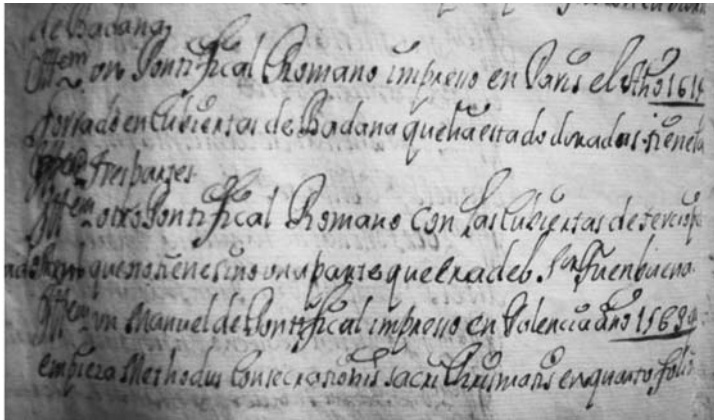 de Badana
Ittem un Pontifical Romano impreso en Paris el Año 1615
forrado en Cubiertas de Badana que ha estado doradas tiene la
tres partes
Ittem otro Pontifical Romano con las Cubiertas de terciop
que no tiene sino una parte que era del Sr Fuenbuena
Ittem un Manuel de Pontifical impreso en Valencia año 1569
empieza Methodus Consecrationis sacri Chrismatis en quarto folio